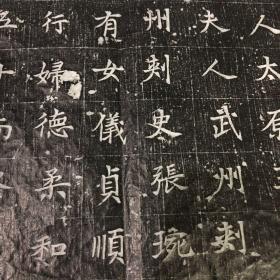 人太原
夫人武州刺
州刺史張琬
有女儀貞順
行婦德柔和
五十而